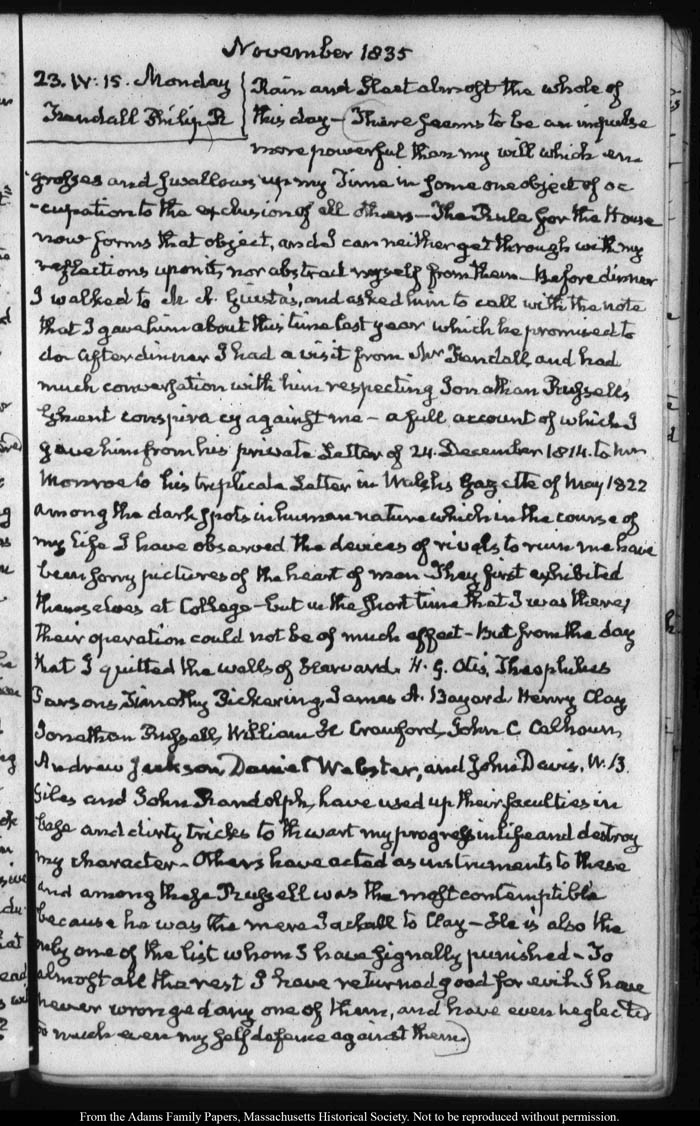 November 1835
23. IV: 15. Monday
Trendall Philip R
Rain and Sleet almost the whole of
this day – (There seems to be an impulse
more powerful than my will which en-
grosses and swallows up my Time in some one object of oc
-cupation to the exclusion of all others – The Rule for the House
now forms that object, and I can neither get through with my
reflections upon it, nor abstract myself from them – Before dinner
I walked to Mr A. Giusta's, and asked him to call with the note
that I gave him about this time last year which he promised to
do After dinner I had a visit from Mr Fendall, and had
much conversation with him respecting Jonathan Russell's
Ghent conspiracy against me – a full account of which I
gave him from his private Letter of 24. December 1814. to Mr
Monroe to his triplicate Letter in Walsh's Gazette of May 1822
Among the dark spots in human nature which in the course of
my Life I have observed the devices of rivals to ruin me have
been sorry pictures of the heart of man – They first exhibited
themselves at College – but in the short time that I was there,
their operation could not be of much effect – But from the day
that I quitted the walls of Harvard. H. G. Otis, Theophilus
Parsons, Timothy Pickering, James A. Bayard, Henry Clay
Jonathan Russell, William H Crawford, John C. Calhoun,
Andrew Jackson, Daniel Webster, and John Davis, W. B.
Giles and John Randolph, have used up their faculties in
base and dirty tricks to thwart my progress in life and destroy
my character – Others have acted as instruments to these
and among these Russell was the most contemptible
because he was the mere Jackall to Clay – He is also the
only one of the list whom I have signally punished – To
almost all the rest I have returned good for evil. I have
never wronged any one of them, and have even neglected
too much even my self defence against them.)
From the Adams Family Papers, Massachusetts Historical Society. Not to be reproduced without permission.